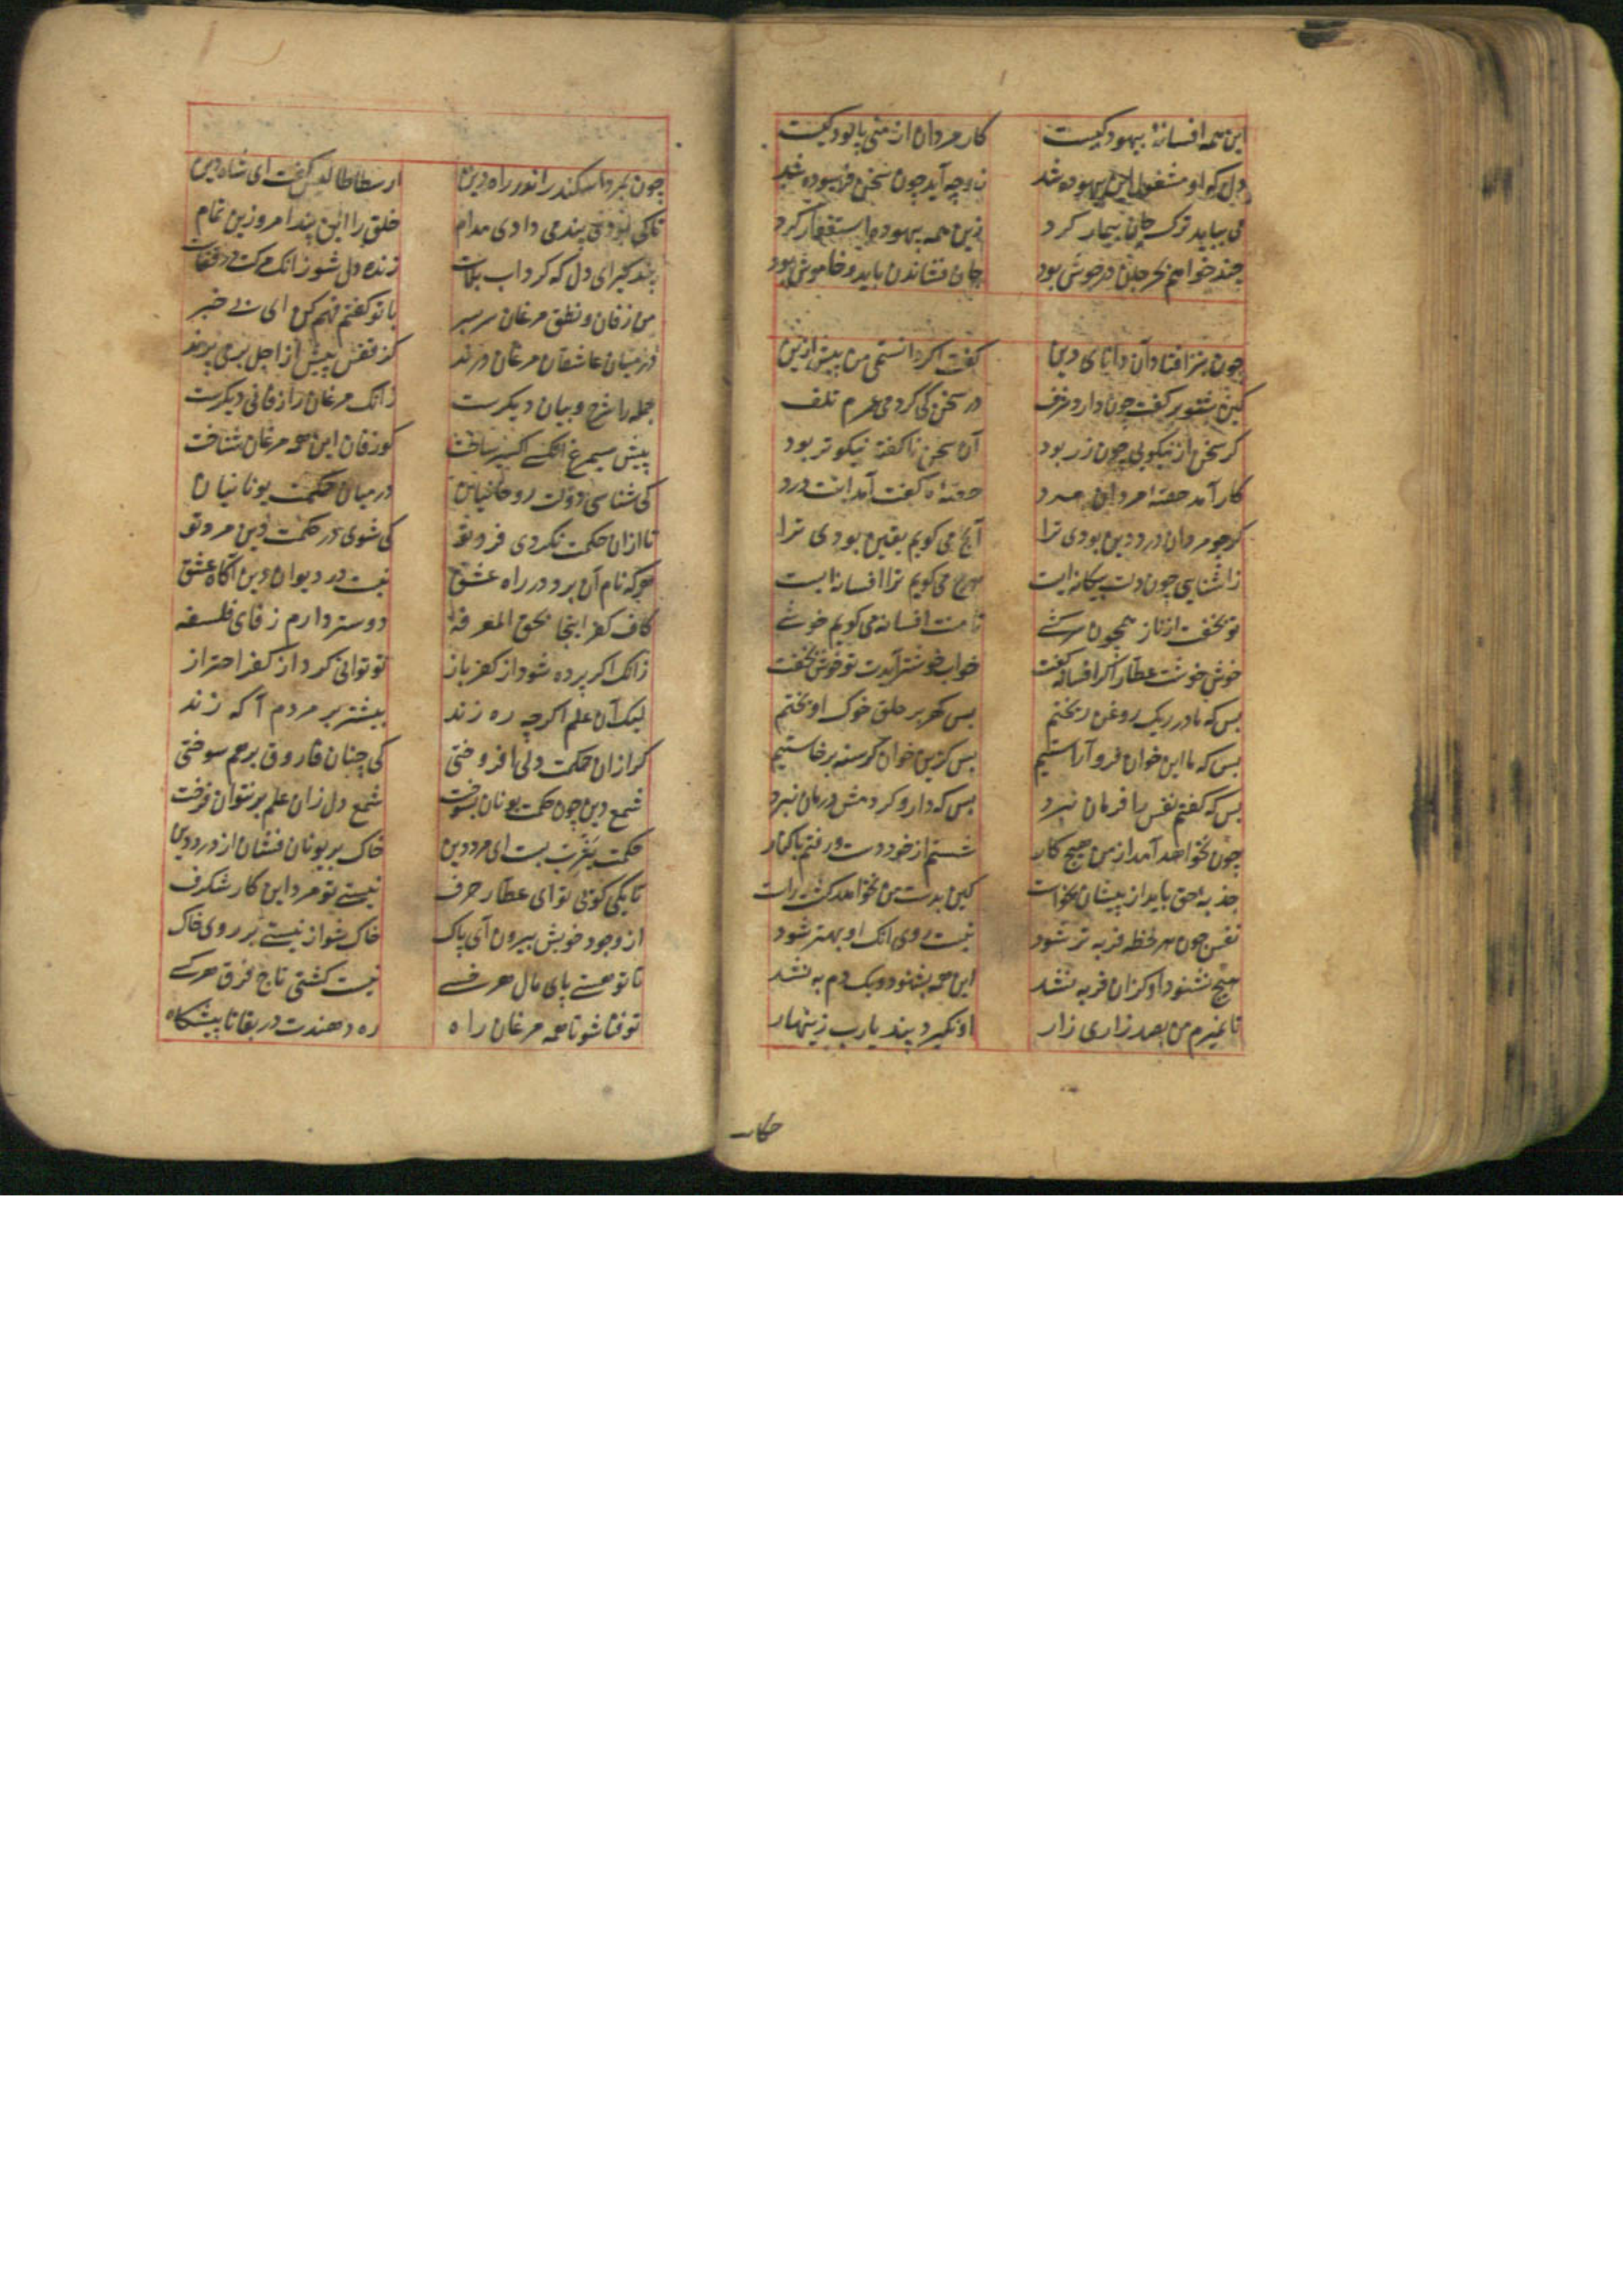 این همه افسانهٔ بیهود کیست کار مردان از منی پالود کیست
دل که او مشغول این بیهوده شد زو چه آید چون سخن فرسوده شد
می بباید ترک جان بیمار کرد زین همه بیهوده استغفار کرد
چند خواهم بحر جان در جوش بود جان فشاندن باید و خاموش بود
چون بنزع افتاد آن دانای دین گفت اگر دانستمی من پیش ازین
کین شنو بر گفت چون دارد شرف در سخن کی کردمی عمرم تلف
گر سخن از نیکویی چون زر بود آن سخن ناگفته نیکوتر بود
کار آمد حصهٔ مردان مرد حصهٔ ما گفت آمد اینت درد
گر چو مردان درد دین بودی ترا آنچ می گویم یقین بودی ترا
زاشنایی چون دلت بیگانه ایست هرچ می گویم ترا افسانه ایست
تو بخفت از ناز همچون سرکشی تا منت افسانه می گویم خوشی
خوش خوشت عطار اگر افسانه گفت خواب خوشتر آیدت تو خوش بخفت
بس که ما در ریک روغن ریختیم بس گهر بر حلق خوک آویختیم
بس که ما این خوان فرو آراستیم بس کزین خوان گرسنه برخاستیم
بس که گفتم نفس را فرمان نبرد بس که دارو کردمش درمان نبرد
چون نخواهد آمد از من هیچ کار شستم از خود دست و رفتم با کنار
جذبهٔ حق باید از پیشان بخواست کین بدست من نخواهد گشت راست
نفس چون هر لحظه فربه تر شود نیست روی انک او بهتر شود
هیچ نشنود او کزان فربه نشد این همه بشنود و یک دم به نشد
تا نمیرم من بصد زاری زار او نگیرد پند یارب زینهار
حکایت
چون بمرد اسکندر اندر راه دین ارسطاطالیس گفت ای شاه دین
تا که بودی پند می دادی مدام خلق را این پند امروزین تمام
پند گیر ای دل که گرداب بلاست زنده دل شو زانک مرگت در قفاست
من زفان و نطق مرغان سر بسر با تو گفتم فهم کن ای بی خبر
در میان عاشقان مرغان درند کز قفس پیش از اجل برمی پرند
جمله را شرح و بیان دیگرست زانک مرغان را زفانی دیگرست
پیش سیمرغ آنکسی اکسیر ساخت کو زفان این همه مرغان شناخت
کی شناسی دولت روحانیان در میان حکمت یونانیان
تا ازان حکمت نگردی فرد تو کی شوی در حکمت دین مرد تو
هرکه نام آن برد در راه عشق نیست در دیوان دین آگاه عشق
کاف کفر اینجا بحق المعرفه دوستر دارم ز فای فلسفه
زانک اگر پرده شود از کفر باز تو توانی کرد از کفر احتراز
لیک آن علم اگر چه ره زند بیشتر بر مردم آگه زند
گر ازان حکمت دلی افروختی کی چنان فاروق بر هم سوختی
شمع دین چون حکمت یونان بسوخت شمع دل زان علم بر نتوان فروخت
حکمت یثرب بست ای مرد دین خاک بر یونان فشان از درد دین
تا بکی گوئی تو ای عطار حرف نیستی تو مرد این کار شگرف
از وجود خویش بیرون آی پاک خاک شو از نیستی بر روی خاک
تا تو هستی پای مال هر خسی نیست گشتی تاج فرق هر کسی
تو فنا شو تا همه مرغان راه ره دهندت در بقا تا پیشگاه